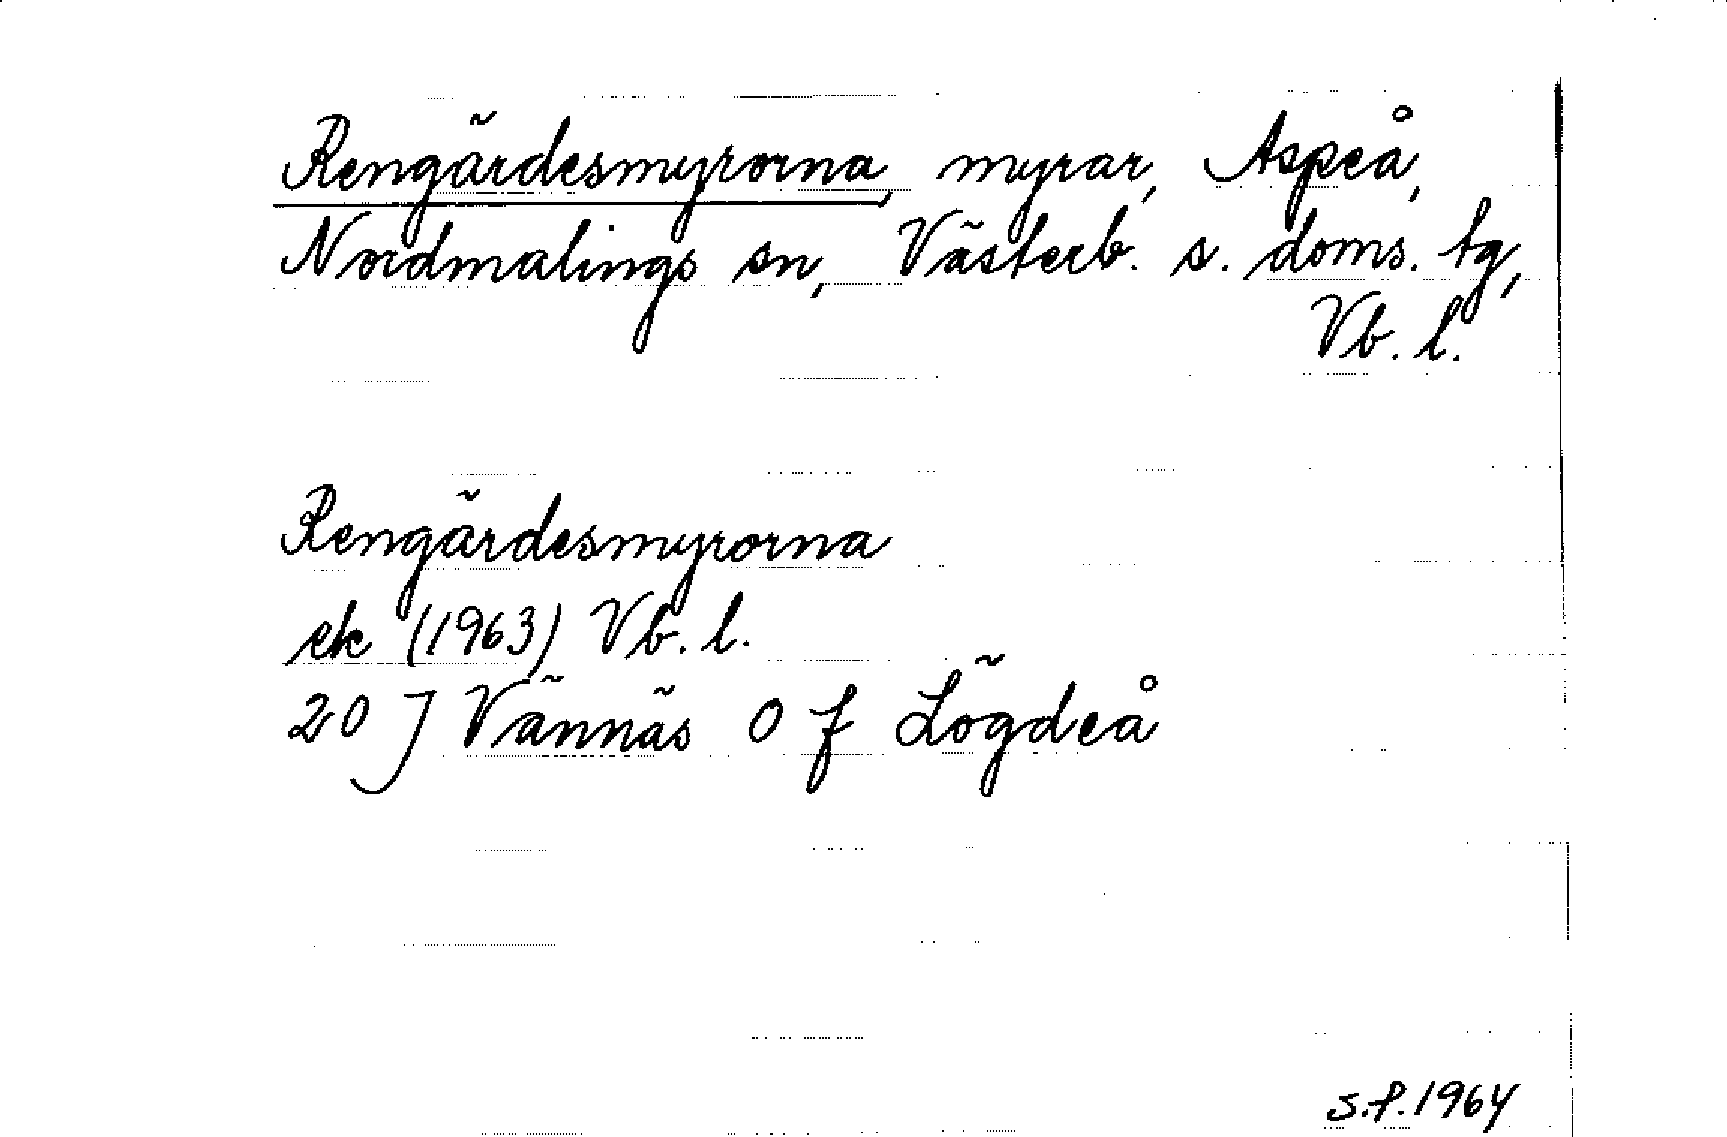 Rengärdesmyrorna, myrar, Aspeå,
Nordmalings sn, Västerb. s. doms. tg,
Vb. l.
Rengärdesmyrorna
ek (1963) Vb. l.
20 J Vännäs O f Lögdeå
S.F. 1964